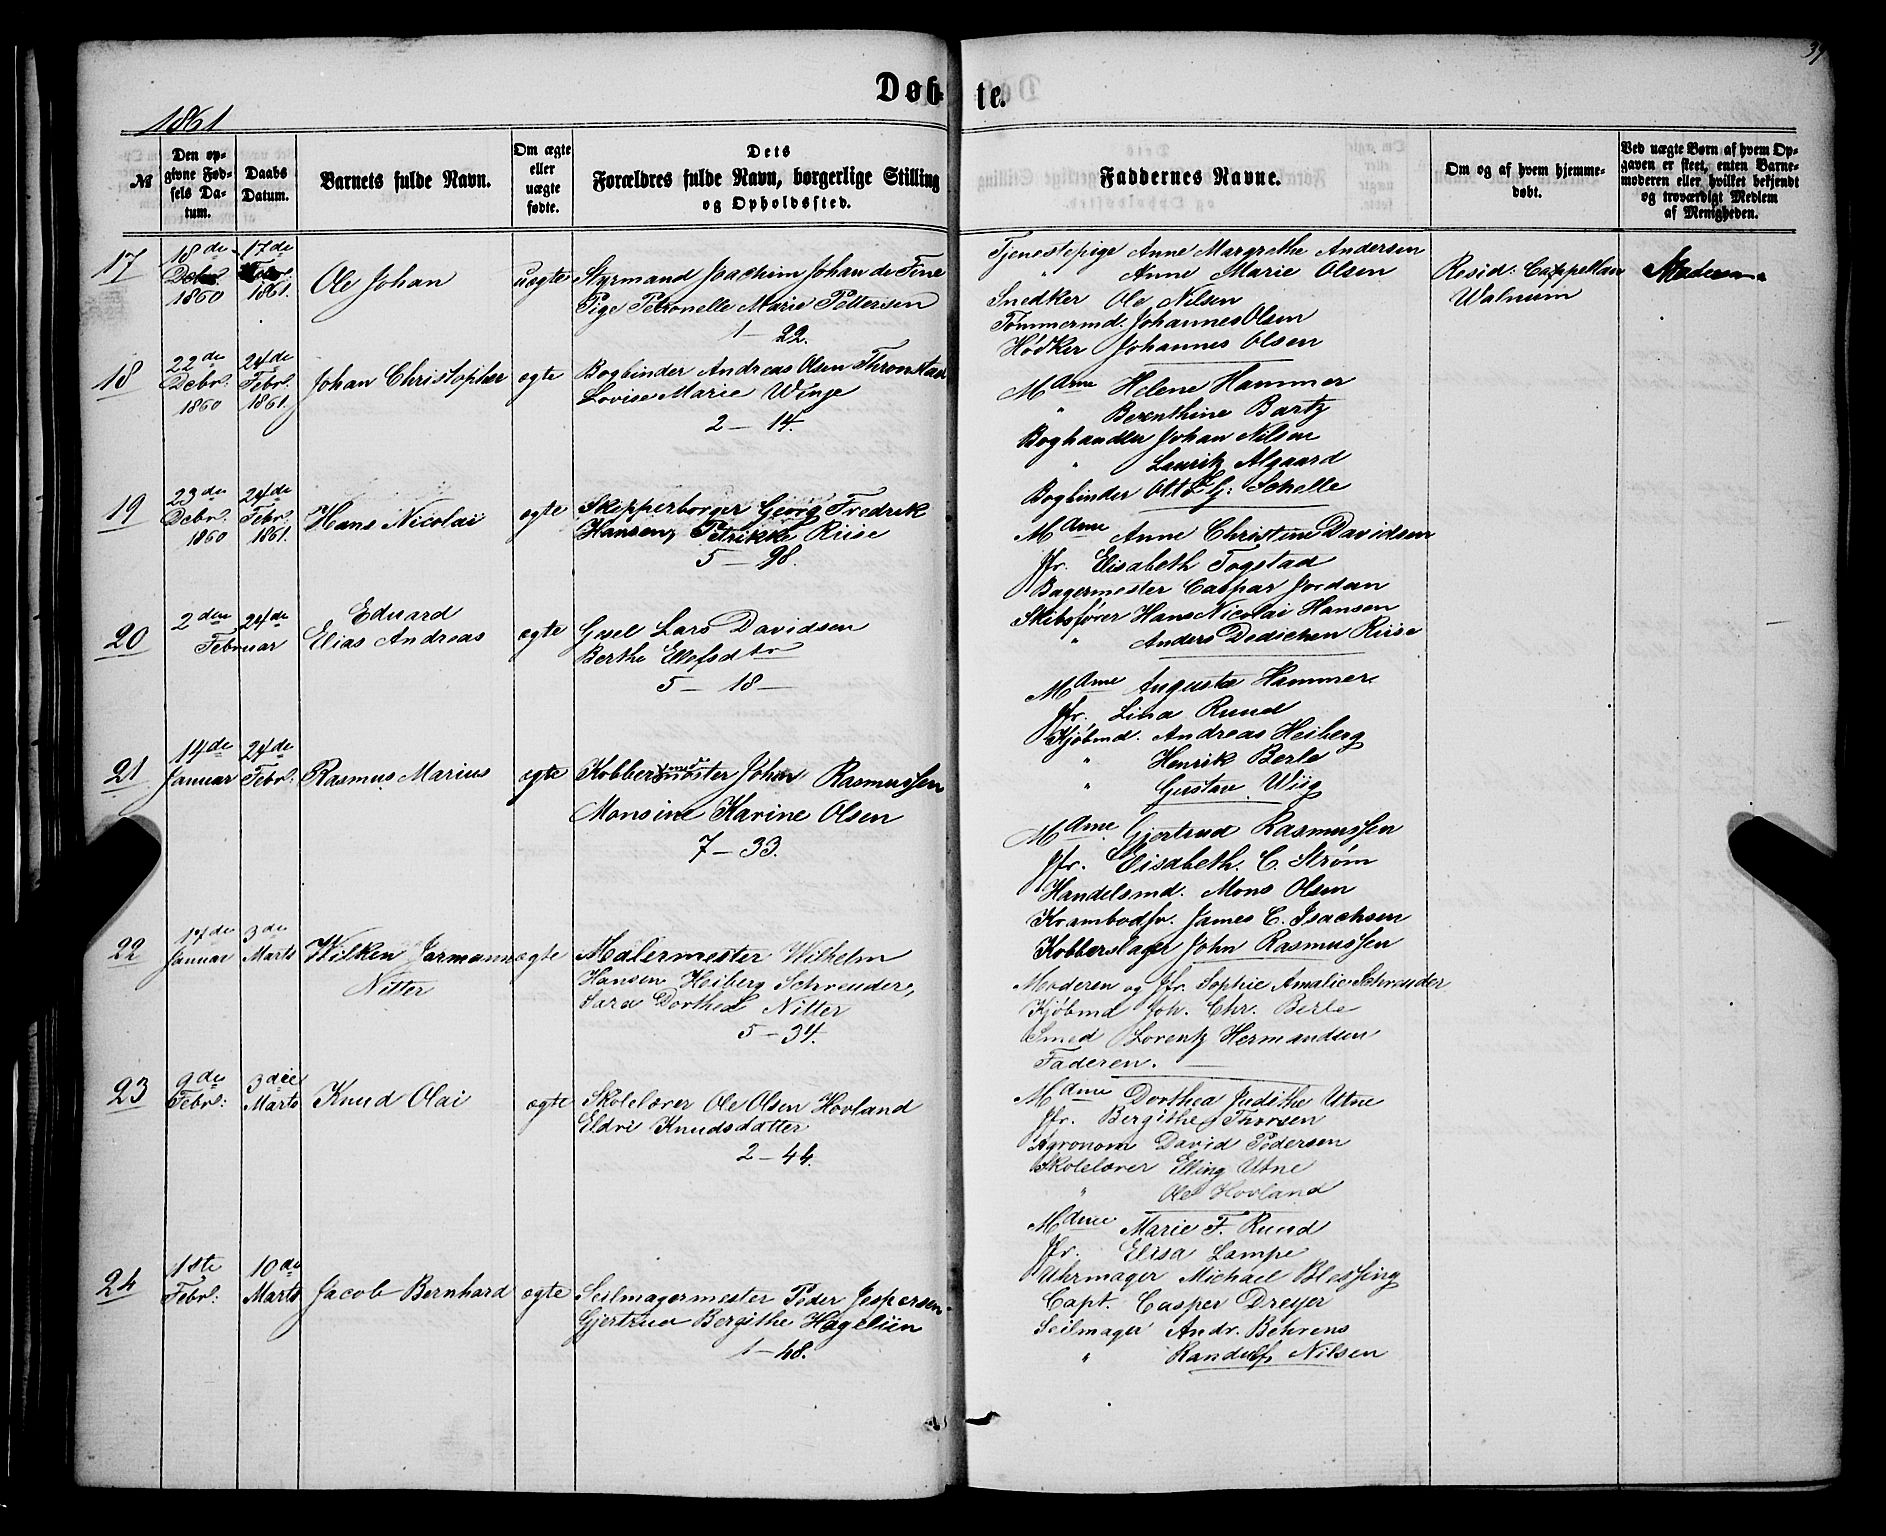 39
Døb-te.
1861
№
Den op-
givne Fød-
sels Da-
tum.
Daabs
Datum.
Barnets fulde Navn.
Om ægte
eller
uægte
fødte.
Dets
Forældres fulde Navn, borgerlige Stilling
og Opholdssted.
Faddernes Navne.
Om og af hvem hjemme-
døbt.
Ved uægte Børn af hvem Op-
gaven er skeet, enten Barne-
moderen eller hvilket bekjendt
og troværdigt Medlem
af Menigheden.
17
18de
Debr.
1860
17de
Febr.
1861.
Ole Johan
uægte
Styrmand Joachim Johan de Fine
Pige Petronelle Marie Pettersen
1 – 22.
Tjenestepige Anne Margrethe Andersen
" Anne Marie Olsen
Snedker Ole Nilsen
Tømmermd. Johannes Olsen
Hødker Johannes Olsen
Resid: Cappellan
Walnum
Moderen
18
22de
Debr.
1860
24de
Febr.
1861.
Johan Christopher
ægte
Bogbinder Andreas Olsen Thronstad
Lovise Marie Winje
2 – 14.
Mdme Helene Hammer
" Berenthine Bartz
Boghandler Johan Nilsen
" Lauritz Algaard
Bogbinder Otto G: Schelle
19
23de
Debr.
1860
24de
Febr.
1861.
Hans Nicolai
ægte
Skipperborger Georg Fredrik
Hansen, Petrikke Riise
5 – 98.
Mdme Anne Christine Davidsen
Jfr. Elisabeth Togstad
Bagermester Caspar Jordan
Skibsfører Hans Nicolai Hansen
" Anders Dedichen Riise
20
2den
Februar
24de
Eduard
Elias Andreas
ægte
Gsel Lars Davidsen
Berthe Ellefsdtr
5 – 18 –
Mdme Augusta Hammer
Jfr. Lina Ruud
Kjøbmd. Andreas Heiberg
" Henrik Berle
" Gustav Wiig
21
14de
Januar
24de
Febr.
Rasmus Marius
ægte
Kobbersmedmester Johan Rasmussen
Monsine Karine Olsen
7 – 33.
Mdme. Gjertrud Rasmussen
Jfr. Elisabeth. C. Strøm
Handelsmd. Mons Olsen
Krambodsv. James C. Isachsen
Kobberslager John Rasmussen
22
17de
Januar
3die
Marts
Wilken Jarmann
Nitter
ægte
Malermester Wilhelm
Hansen Heiberg Schreuder,
Sara Dorthea Nitter
5 – 34.
Moderen og Jfr. Sophie Amalie Schreuder
Kjøbmd Joh. Chr. Berle
Smed Lorentz Hermandsen
Faderen.
23
9de
Febr:
3die
Marts
Knud Olai
ægte
Skolelærer Ole Olsen Hovland
Eldri Knudsdatter
2 – 44.
Mdme Dorthea Judithe Utne
Jfr. Bergithe Thorsen
Agronom David Pedersen
Skolelærer Elling Utne
" Ole Hovland
24
1ste
Febr:
10de
Marts
Jacob Bernhard
ægte
Seilmagermester Peder Jespersen
Gjertrud Bergithe Hageliin
1 – 48.
Mdme Marie F. Ruud
Jfr. Elisa Lampe
Uhrmager Michael Blessing
Capt. Casper Dreyer
Seilmager Andr. Behrens
" Randulf Nilsen